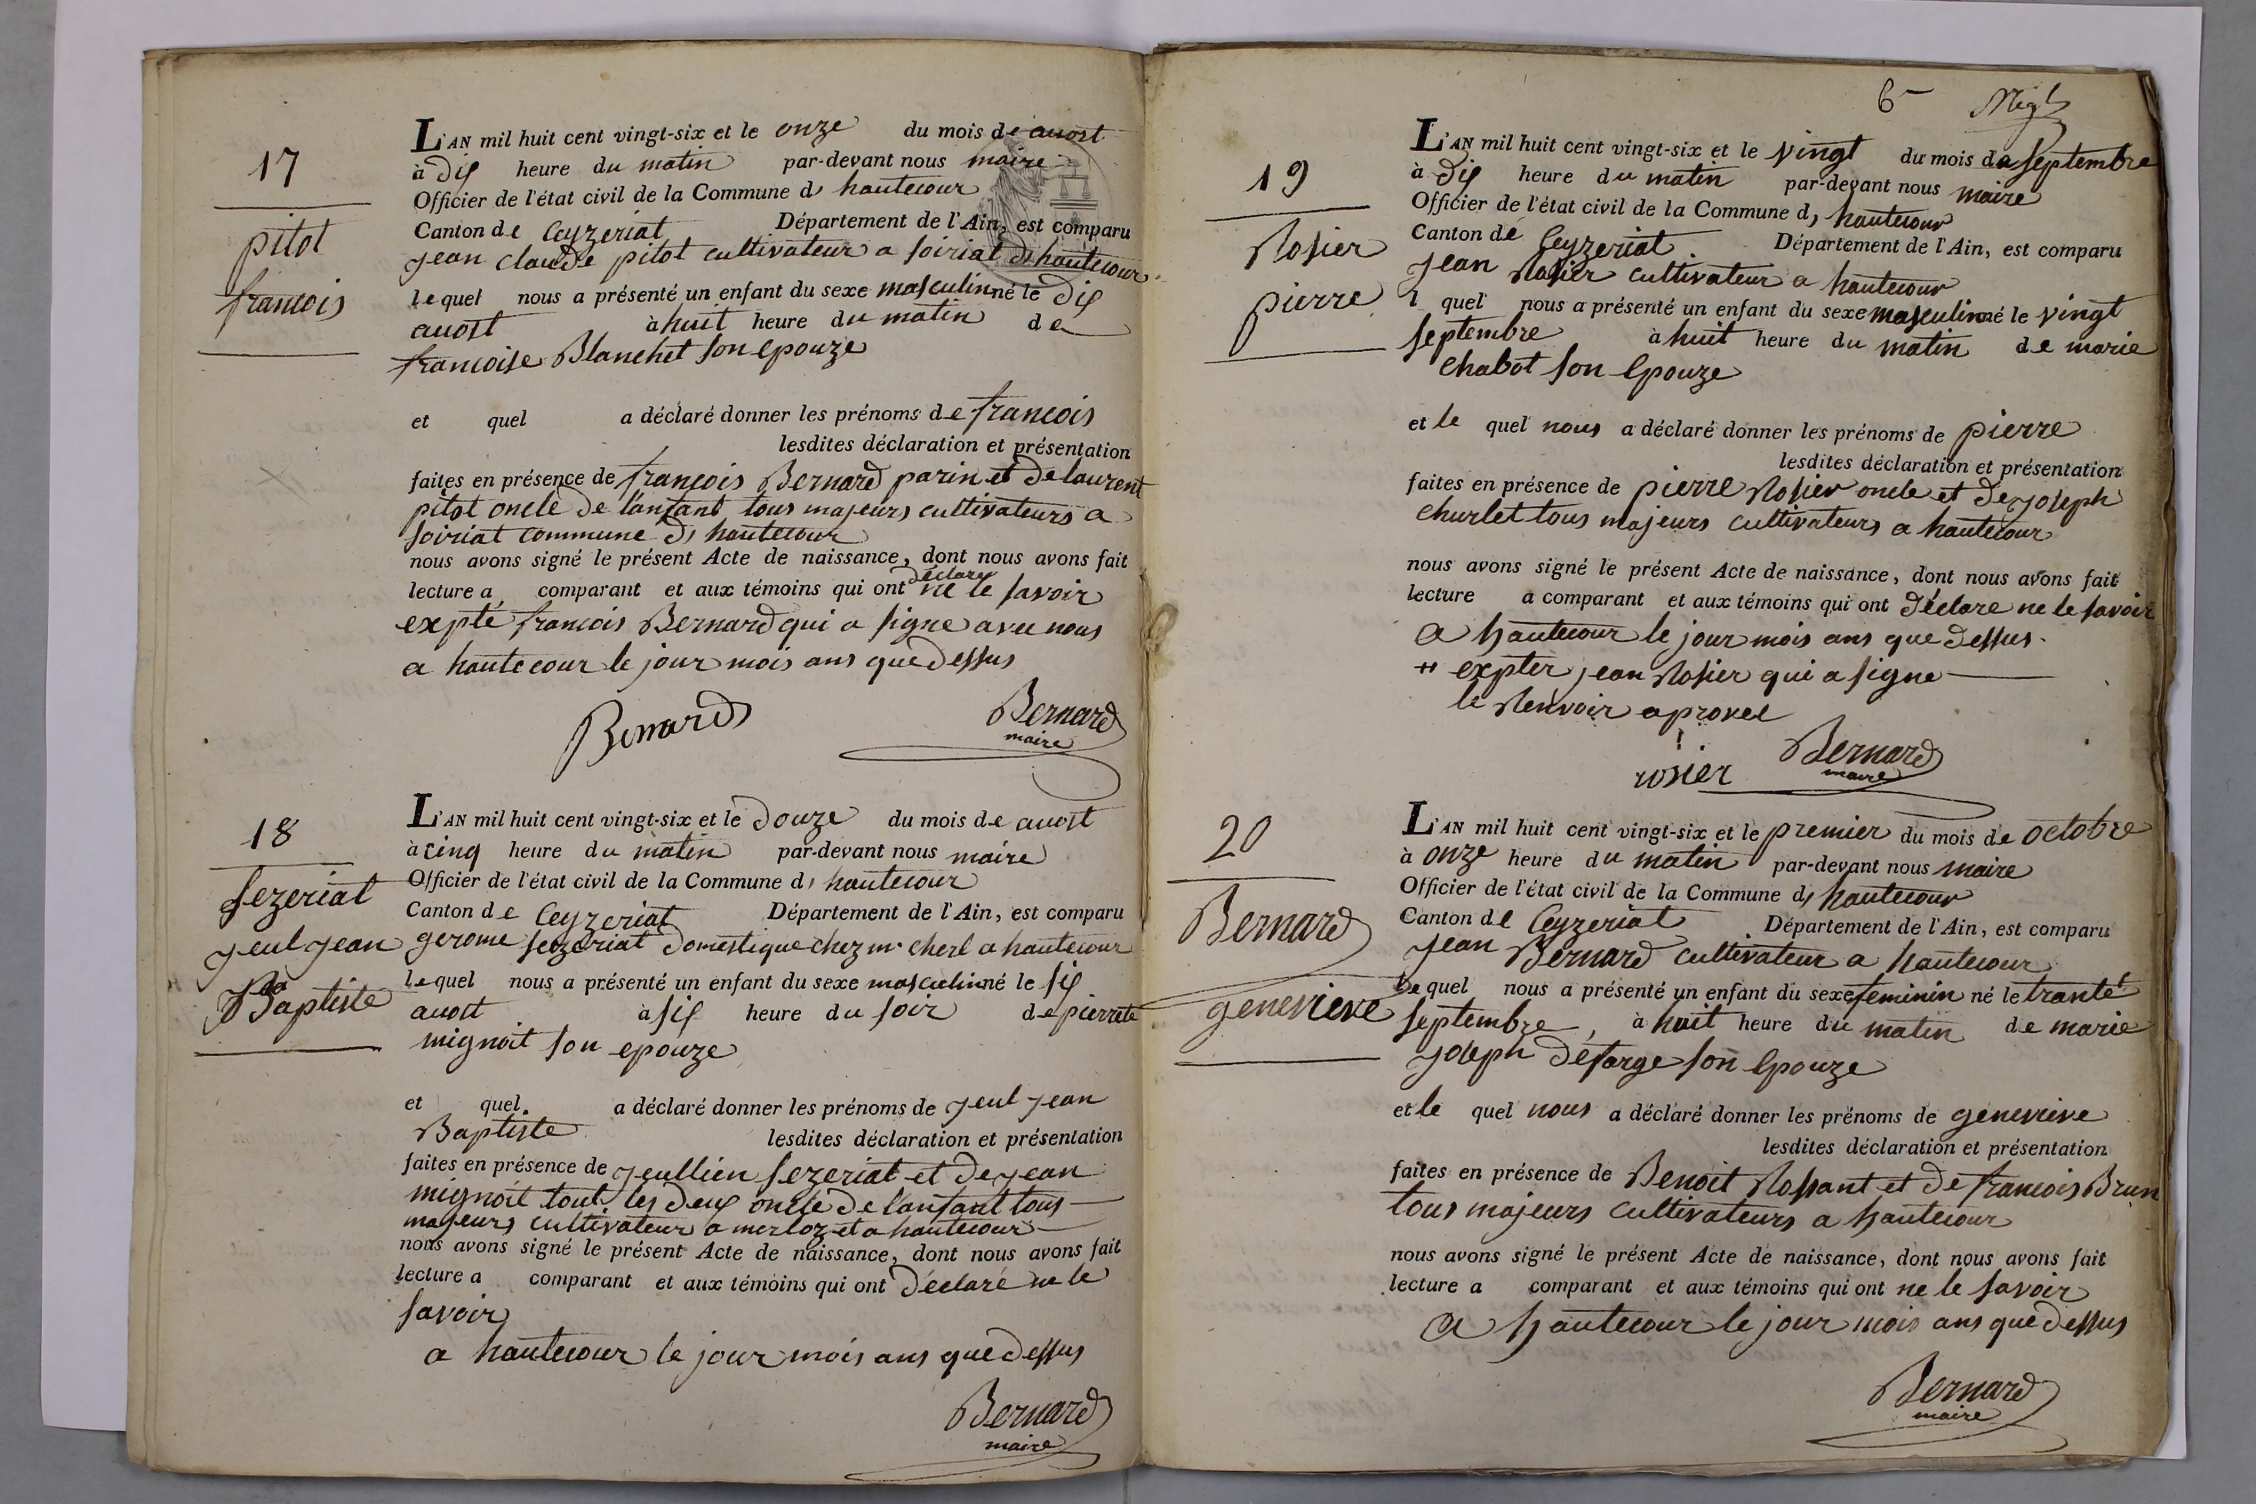 17
pitot
francois
L'AN mil huit cent vingt-six et le onze du mois de auost
à dix heure du matin par-devant nous maire
Officier de l'état civil de la Commune d, hautecour
Canton de Ceyzeriat Département de l'Ain, est comparu
jean claude pitot cultivateur a soiriat d, hautecour
lequel nous a présenté un enfant du sexe masculin né le dix
auost à huit heure du matin de
francoise Blanchet son epouze
et quel a déclaré donner les prénoms de francois
lesdites déclaration et présentation
faites en présence de francois Bernard parin et de laurent
pitot oncle de l'anfant tous majeurs cultivateurs a
soiriat commune d, hautecour
nous avons signé le présent Acte de naissance, dont nous avons fait
lecture a comparant et aux témoins qui ont déclare ne le savoir
expté francois Bernard qui a signe avec nous
a hautecour le jour mois ans que dessus
Bernard Bernard
maire
18
sezeriat
jeul jean
Baptiste
L'AN mil huit cent vingt-six et le douze du mois de auost
à cinq heure du matin par-devant nous maire
Officier de l'état civil de la Commune d, hautecour
Canton de Ceyzeriat Département de l'Ain, est comparu
gerome sezeriat domestique chez mr cherl a hautecour
lequel nous a présenté un enfant du sexe masculin né le six
auost à six heure du soir de pierrete
mignoit son epouze
et quel. a déclaré donner les prénoms de jeul jean
Baptiste lesdites déclaration et présentation
faites en présence de jeullien sezeriat et de jean
mignoit tout les deux oncle de l'anfant tous
majeurs cultivateur a merloz et a hautecour
nous avons signé le présent Acte de naissance, dont nous avons fait
lecture a comparant et aux témoins qui ont déclaré ne le
savoir
a hautecour le jour mois ans que dessus
Bernard
maire
6
19
Rosier
pierre
L'AN mil huit cent vingt-six et le vingt du mois de septembre
à dix heure du matin par-devant nous maire
Officier de l'état civil de la Commune d, hautecour
Canton de Ceyzeriat Département de l'Ain, est comparu
jean Rosier cultivateur a hautecour
l quel nous a présenté un enfant du sexe masculin né le vingt
septembre à huit heure du matin de marie
chabot son epouze
et le quel nous a déclaré donner les prénoms de pierre
lesdites déclaration et présentation
faites en présence de pierre Rosier oncle et de joseph
churlet tous majeurs cultivateurs a hautecour
nous avons signé le présent Acte de naissance, dont nous avons fait
lecture a comparant et aux témoins qui ont déclare ne le savoir
a hautecour le jour mois ans que dessus
# expter jean Rosier qui a signe
le Renvoir aprovee
rosier Bernard
maire
20
Bernard
genevieve
L'AN mil huit cent vingt-six et le premier du mois de octobre
à onze heure du matin par-devant nous maire
Officier de l'état civil de la Commune d, hautecour
Canton de Ceyzeriat Département de l'Ain, est comparu
jean Bernard cultivateur a hautecour
Le quel nous a présenté un enfant du sexe feminin né le trante
septembre, à huit heure du matin de marie
joseph défarge son epouze
et le quel nous a déclaré donner les prénoms de genevieve
lesdites déclaration et présentation
faites en présence de Benoit Rossant et de francois Brun
tous majeurs cultivateurs a hautecour
nous avons signé le présent Acte de naissance, dont nous avons fait
lecture a comparant et aux témoins qui ont ne le savoir
a hautecour le jour mois ans que dessus
Bernard
maire